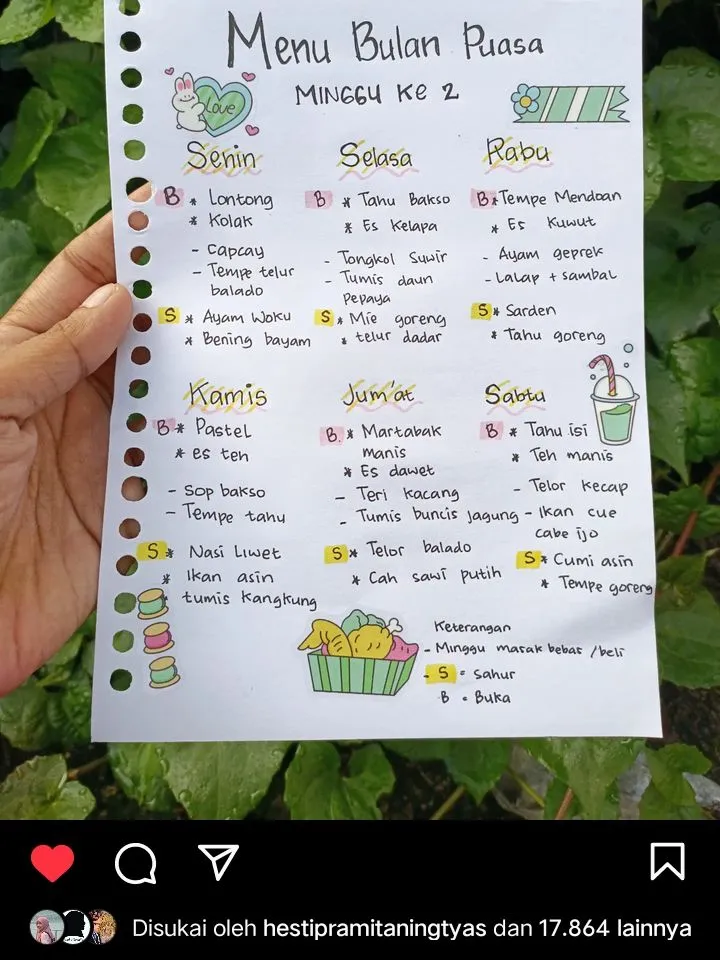 Menu Bulan Puasa
MINGGU KE 2
Love
Senin
B * Lontong
* Kolak
- Capcay
- Tempe telur
balado
S * Ayam Woku
* Bening bayam
Selasa
B * Tahu Bakso
* Es Kelapa
- Tongkol Suwir
- Tumis daun
Pepaya
S * Mie goreng
* telur dadar
Rabu
B * Tempe Mendoan
* Es Kuwut
- Ayam geprek
- Lalap + sambal
S * Sarden
* Tahu goreng
Kamis
B * Pastel
* es teh
- Sop bakso
- Tempe tahu
S * Nasi Liwet
* Ikan asin
tumis kangkung
Jum'at
B. * Martabak
manis
* Es dawet
- Teri kacang
- Tumis buncis jagung
S * Telor balado
* Cah sawi putih
Sabtu
B * Tahu isi
* Teh manis
- Telor kecap
- Ikan cue
cabe ijo
S * Cumi asin
* Tempe goreng
Keterangan
- Minggu masak bebas / beli
- S = Sahur
B = Buka
Disukai oleh hestipramitaningtyas dan 17.864 lainnya